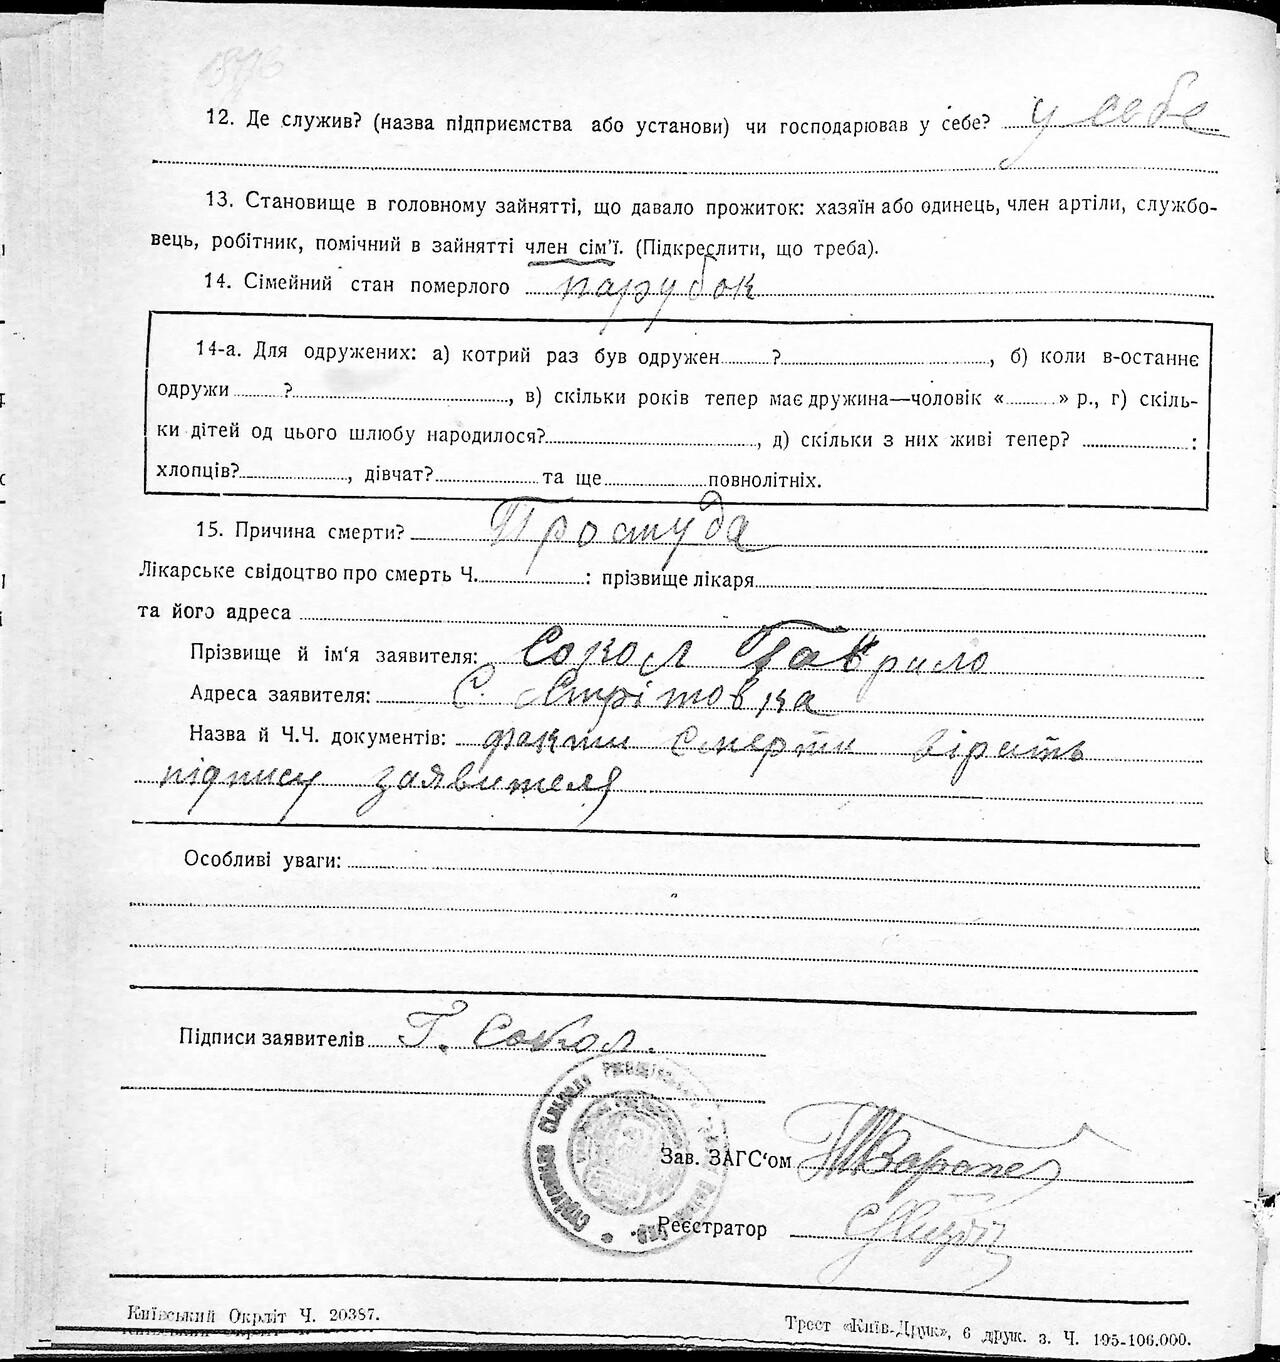 12. Де служив? (назва підприємства або установи) чи господарював у себе? у себе
13. Становище в головному зайнятті, що давало прожиток: хазяїн або одинець, член артіли, службо-
вець, робітник, помічний в зайнятті член сім'ї. (Підкреслити, що треба).
14. Сімейний стан померлого парубок
14-а. Для одружених: а) котрий раз був одружен ? , б) коли в-останнє
одружи ? , в) скільки років тепер має дружина—чоловік « » р., г) скіль-
ки дітей од цього шлюбу народилося? , д) скільки з них живі тепер? :
хлопців? , дівчат? та ще повнолітніх.
15. Причина смерти? Простуда
Лікарське свідоцтво про смерть Ч. : прізвище лікаря
та його адреса
Прізвище й ім'я заявителя: Сокол Гаврило
Адреса заявителя: С. Стрітовка
Назва й Ч.Ч. документів: факти смерти вірать
підпису заявителя
Особливі уваги:
Підписи заявителів Г. Сокол.
Зав. ЗАГС'ом
Реєстратор
Київський Окрліт Ч. 20387.
Трест «Київ-Друк», 6 друк. з. Ч. 195-106.000.